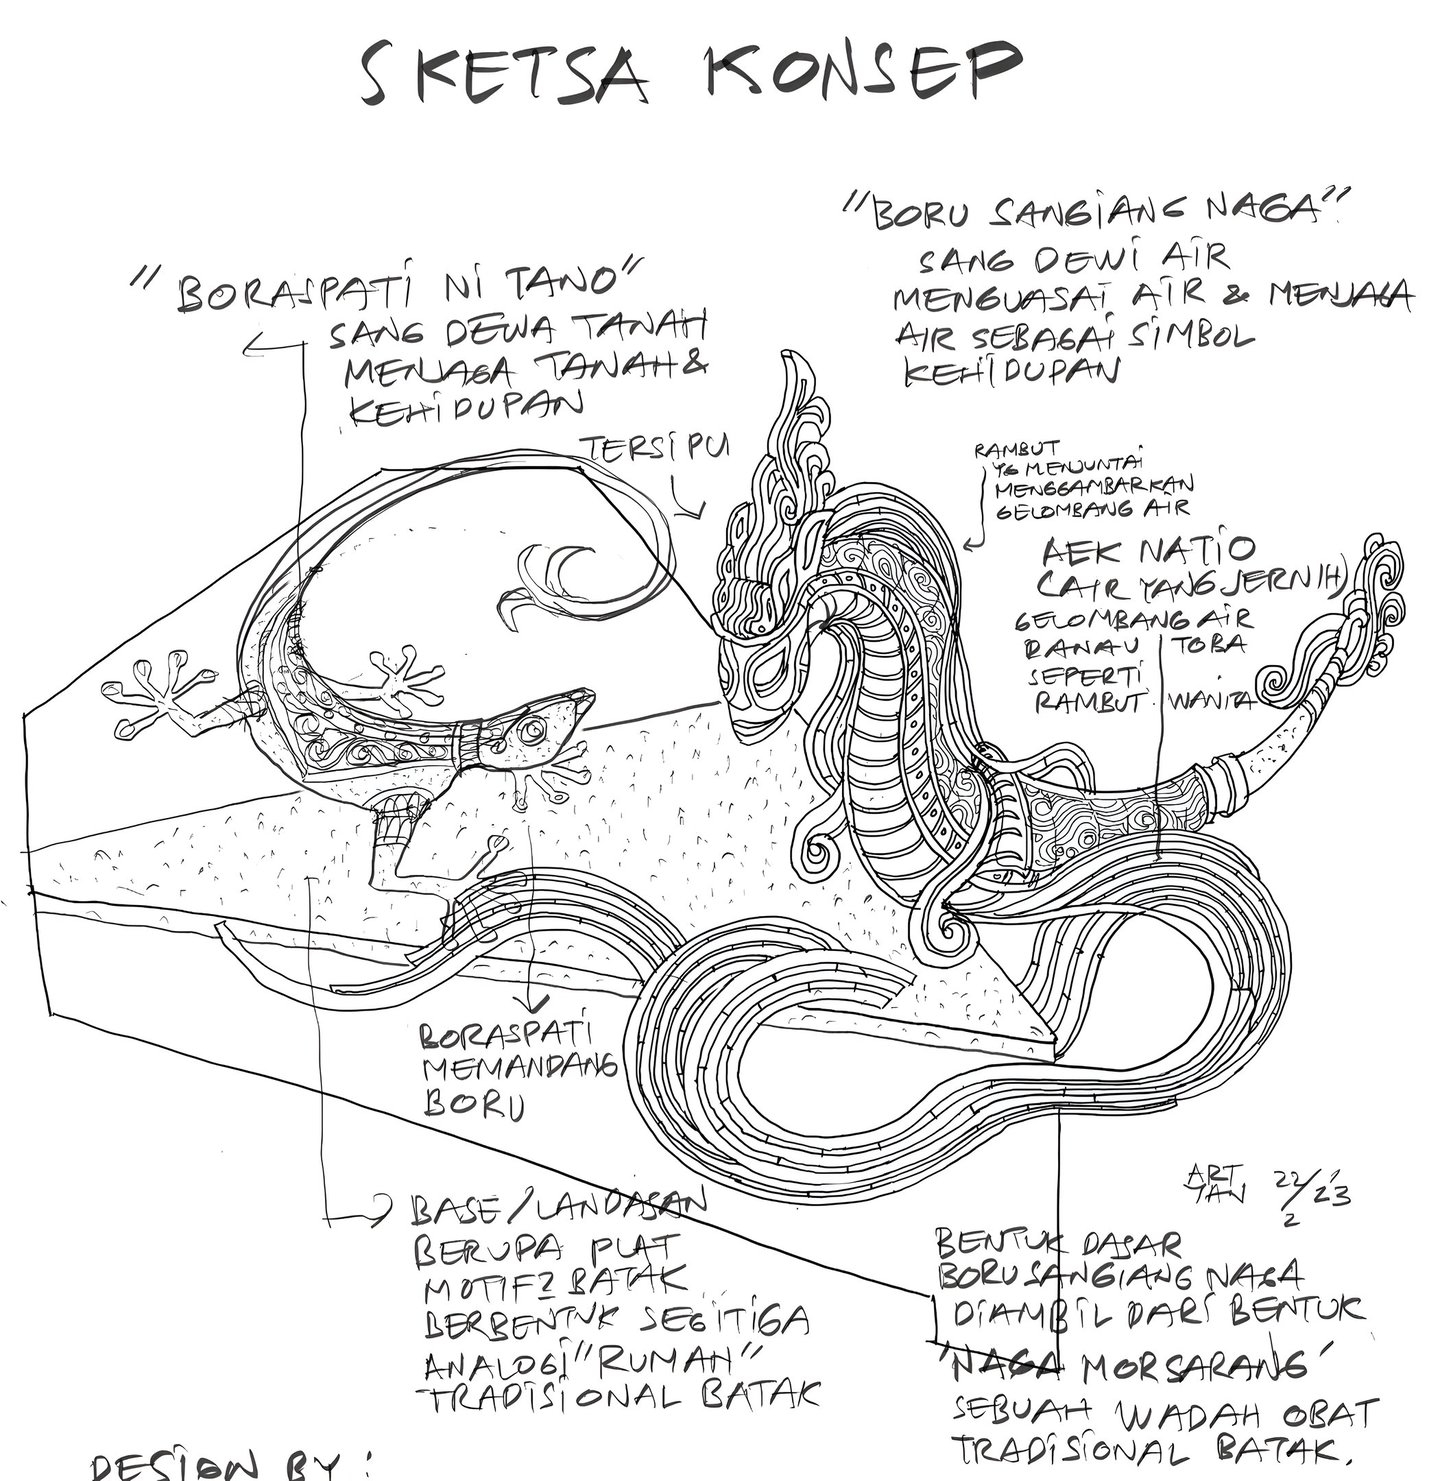 SKETSA KONSEP
"BORU SANGIANG NAGA"
SANG DEWI AIR
MENGUASAI AIR & MENJAGA
AIR SEBAGAI SIMBOL
KEHIDUPAN
"BORASPATI NI TANO"
SANG DEWA TANAH
MENJAGA TANAH &
KEHIDUPAN
TERSIPU
RAMBUT
YG MENJUNTAI
MENGGAMBARKAN
GELOMBANG AIR
AEK NATIO
CAIR YANG JERNIH)
GELOMBANG AIR
DANAU TOBA
SEPERTI
RAMBUT WANITA
BORASPATI
MEMANDANG
BORU
BASE/LANDASAN
BERUPA PLAT
MOTIF2 BATAK
BERBENTUK SEGITIGA
ANALOGI "RUMAH"
TRADISIONAL BATAK
ART
TAN 22/2 '23
BENTUK DASAR
BORU SANGIANG NAGA
DIAMBIL DARI BENTUK
'NAGA MORSARANG'
SEBUAH WADAH OBAT
TRADISIONAL BATAK.
DESIGN BY: